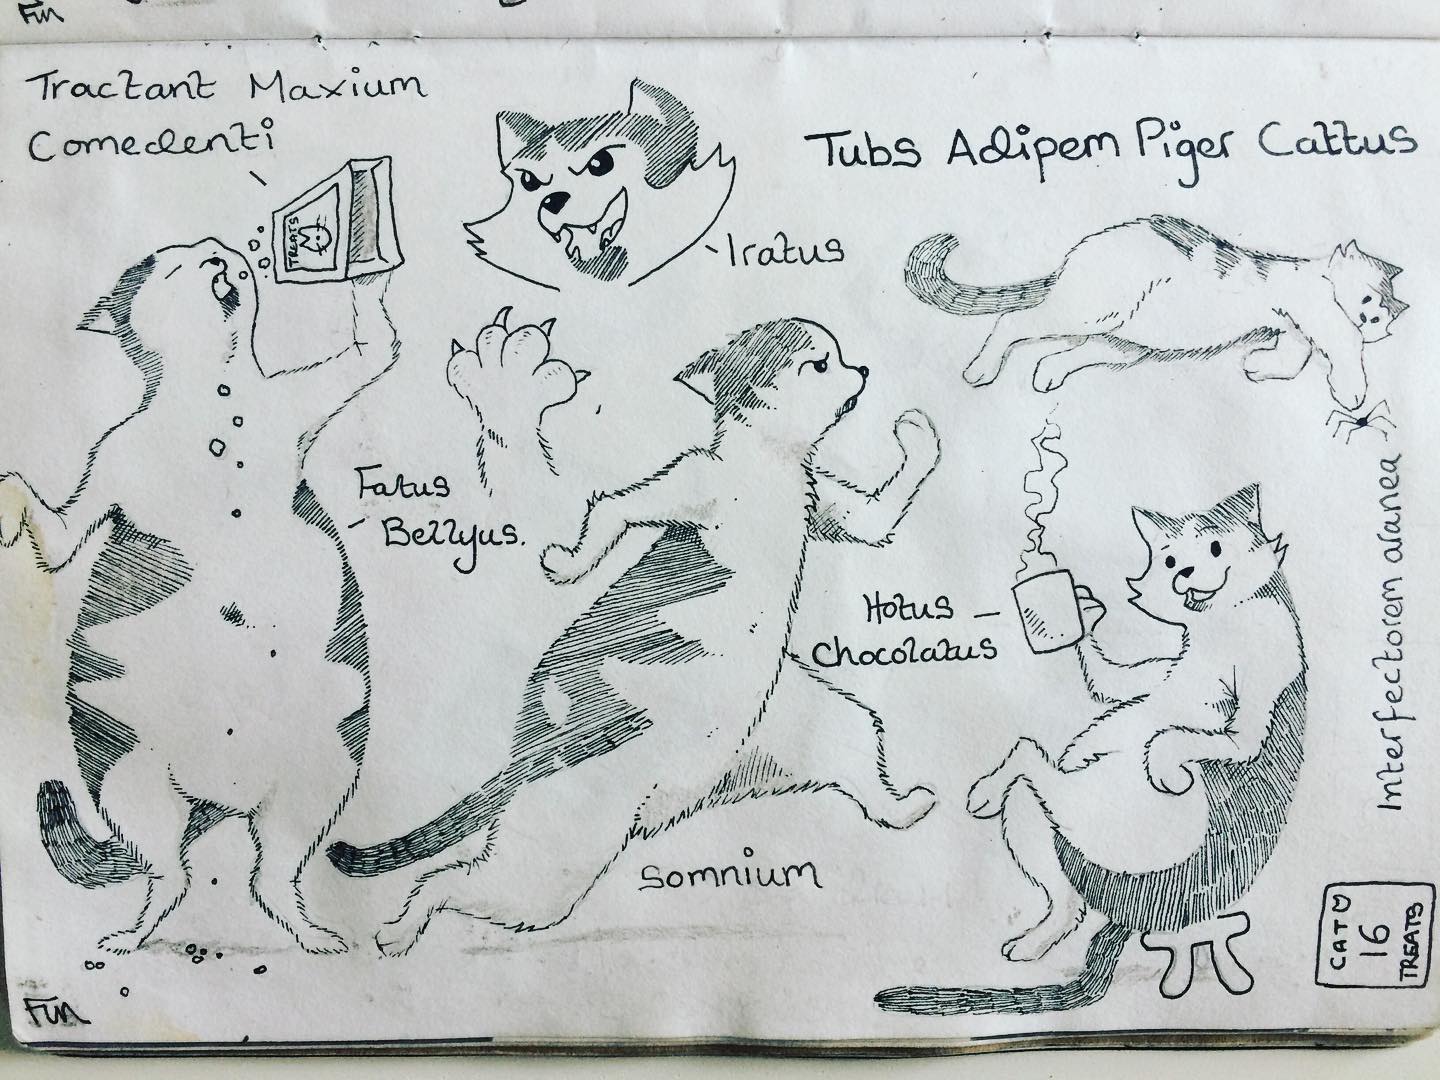 Fin
Tractant Maxium
Comedenti
TREATS
Iratus
Tubs Adipem Piger Cattus
Fatus
Bellyus.
Hotus
Chocolatus
Interfectorem aranea
Somnium
CAT
16
TREATS
Fin